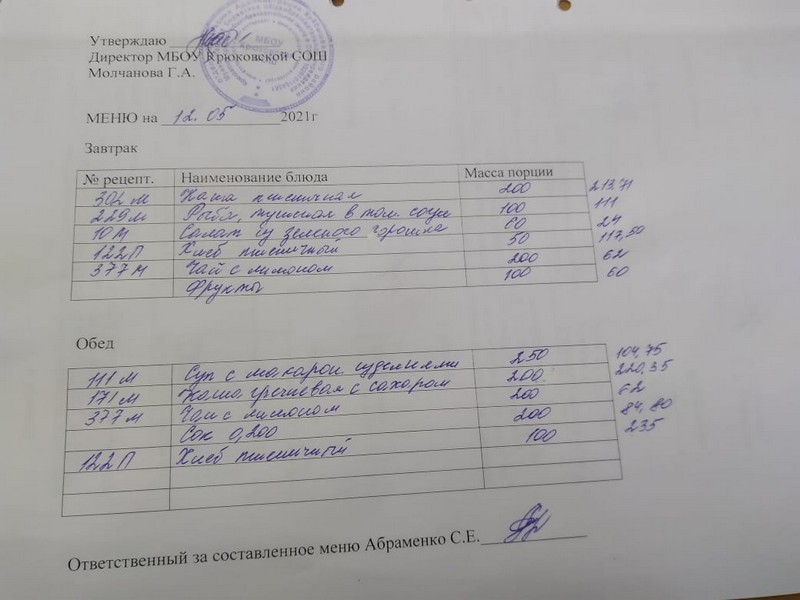 Утверждаю
Директор МБОУ Крюковской СОШ
Молчанова Г.А.
МБОУ
МЕНЮ на 12.05 2021г
Завтрак
№ рецепт. Наименование блюда Масса порции
302 м Каша пшеничная 200 213,71
229м Рыба, тушеная в том. соусе 100 111
10 М Салат из зеленого горошка 60 24
122П Хлеб пшеничный 50 117,50
377 М Чай с лимоном 200 62
Фрукты 100 60
Обед
111 м Суп с макарон изделиями 250 104,75
171 м Каша гречневая с сахаром 200 220,35
377 м Чай с лимоном 200 62
Сок 0,200 200 84,80
122 П Хлеб пшеничный 100 235
Ответственный за составленное меню Абраменко С.Е.